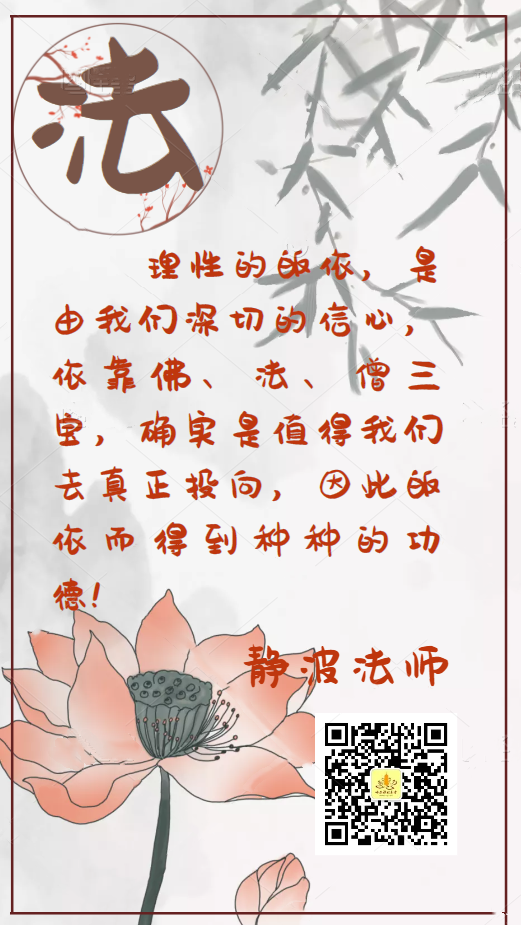 法
理性的皈依，是
由我们深切的信心，
依靠佛、法、僧三
宝，确实是值得我们
去真正投向，因此皈
依而得到种种的功
德！
静波法师